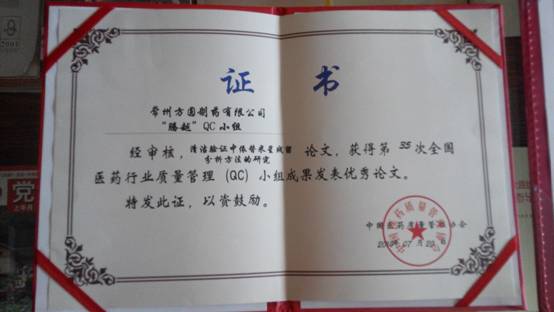 证 书
常州方圆制药有限公司
“腾越”QC小组
经审核，清洁验证中依替米星残留
分析方法的研究 论文，获得第 35 次全国
医药行业质量管理（QC）小组成果发表优秀论文。
特发此证，以资鼓励。
中国医药质量管理协会
党